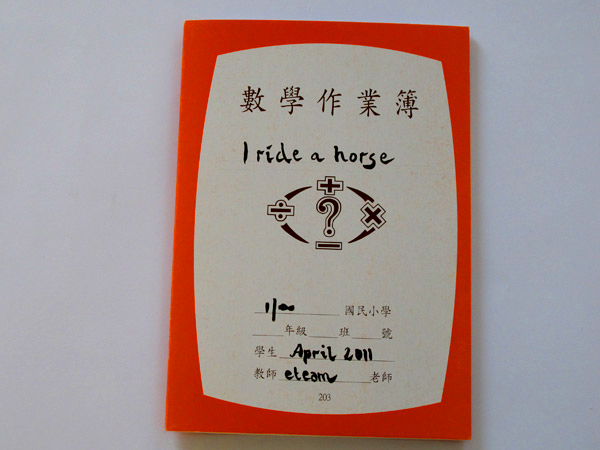 數學作業簿
I ride a horse
國民小學
年級 班 號
學生 April 2011
教師 eteam 老師
203